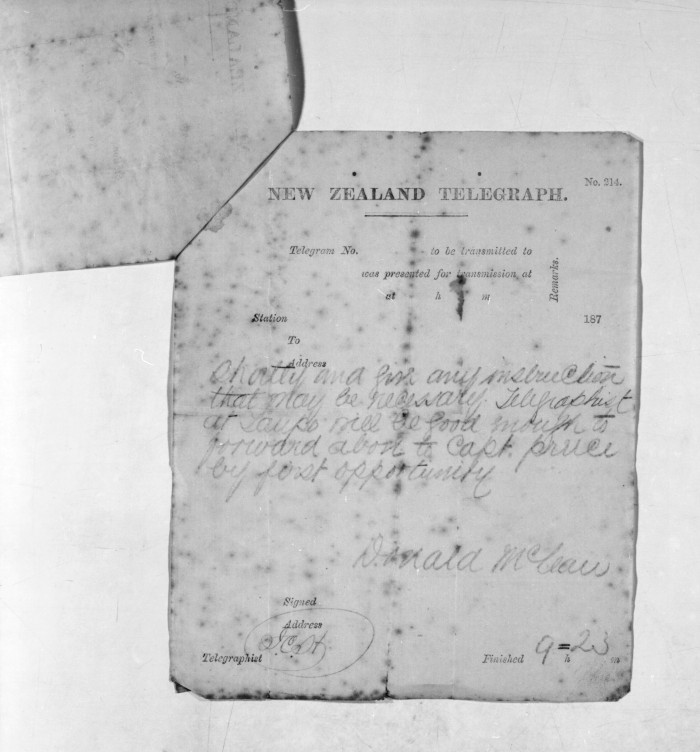 No. 214.
NEW ZEALAND TELEGRAPH.
Telegram No. to be transmitted to
was presented for transmission at
at h m
Remarks.
Station 187
To
Address
Shortly and give any instruction
that may be necessary. Telegraphist
at Taupo will be good enough to
forward above to Capt. preece
by first opportunity
Donald McLean
Signed
Address
Telegraphist
Finished 9=23 h m